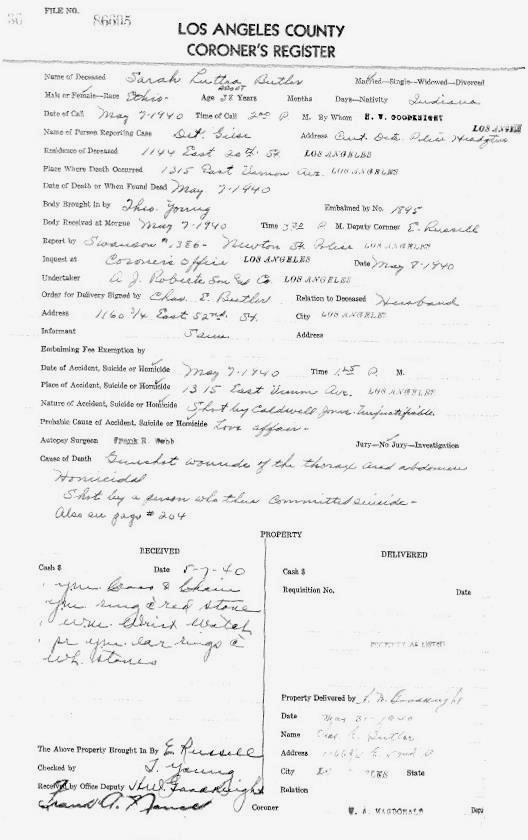 FILE NO. 86695
LOS ANGELES COUNTY
CORONER'S REGISTER
Name of Deceased Sarah Luttra Butler Married—Single—Widowed—Divorced
Male or Female—Race Ethio. Age ABOUT 38 Years Months Days—Nativity Indiana
Date of Call May 7-1940 Time of Call 2 00 P. M. By Whom H. W. GOODKNIGHT
Name of Person Reporting Case Det. Giese Address Cent. Dets. Police Headqtrs LOS ANGELES
Residence of Deceased 1144 East 20th St. LOS ANGELES
Place Where Death Occurred 1315 East Vernon Ave. LOS ANGELES
Date of Death or When Found Dead May 7-1940
Body Brought in by Theo. Young Embalmed by No. 1895
Body Received at Morgue May 7-1940 Time 3 30 P. M. Deputy Coroner E. Russell
Report by Swanson #1386- Newton St. Police LOS ANGELES
Inquest at Coroner's Office LOS ANGELES Date May 8-1940
Undertaker A. J. Roberts Son & Co. LOS ANGELES
Order for Delivery Signed by Chas. E. Butler Relation to Deceased Husband
Address 1160 3/4 East 52nd. St. City LOS ANGELES
Informant Same Address
Embalming Fee Exemption by
Date of Accident, Suicide or Homicide May 7-1940 Time 1 45 P. M.
Place of Accident, Suicide or Homicide 1315 East Vernon Ave. LOS ANGELES
Nature of Accident, Suicide or Homicide Shot by Caldwell Jones. Unjustifiable.
Probable Cause of Accident, Suicide or Homicide Love affair-
Autopsy Surgeon Frank R. Webb Jury—No Jury—Investigation
Cause of Death Gunshot wounds of the thorax and abdomen
Homicidal
Shot by a person who then committed suicide-
Also see page #204
PROPERTY
RECEIVED
DELIVERED
Cash $ Date 5-7-40
Cash $
1 ym. Cross & Chain
Requisition No. Date
ym ring c red stone
1 wm. Wrist Watch
pr ym. ear rings c
wh. stones
PROPERTY AS LISTED
Property Delivered by H. W. Goodknight
Date May 31-1940
Name Chas. E. Butler
The Above Property Brought In By E. Russell
Address
Checked by T. Young
City LOS ANGELES State
Received by Office Deputy H.W. Goodknight
Relation
Frank A. Nance Coroner W. A. MACDONALD Depu